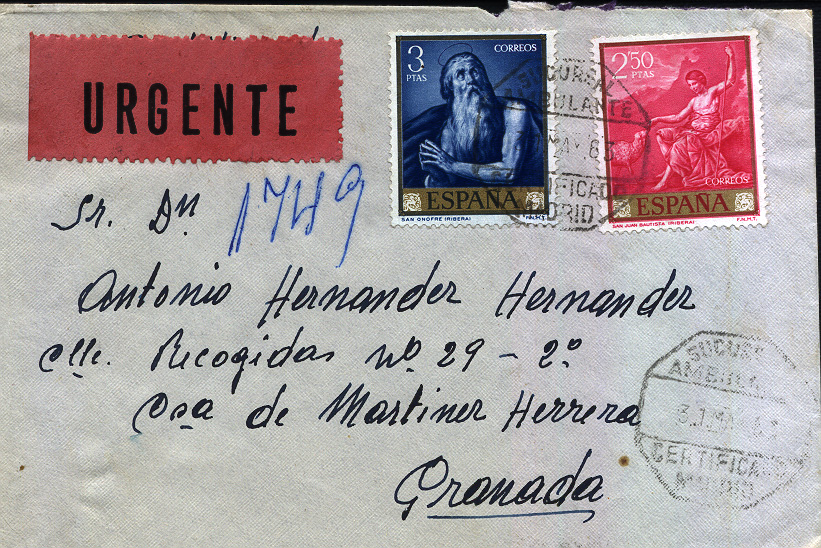 URGENTE
3 PTAS
CORREOS
ESPAÑA
SAN ONOFRE (RIBERA) F.N.M.T.
2'50 PTAS
CORREOS
ESPAÑA
SAN JUAN BAUTISTA (RIBERA) F.N.M.T.
SUCURSAL
MAY. 63
MADRID
1749
Sr. Dn
Antonio Hernander Hernander
clle. Recogidas nº 29 - 2º
Csa de Martiner Herrera
Granada
SUCURS
31 MAY 63
CERTIFICADO
MADRID